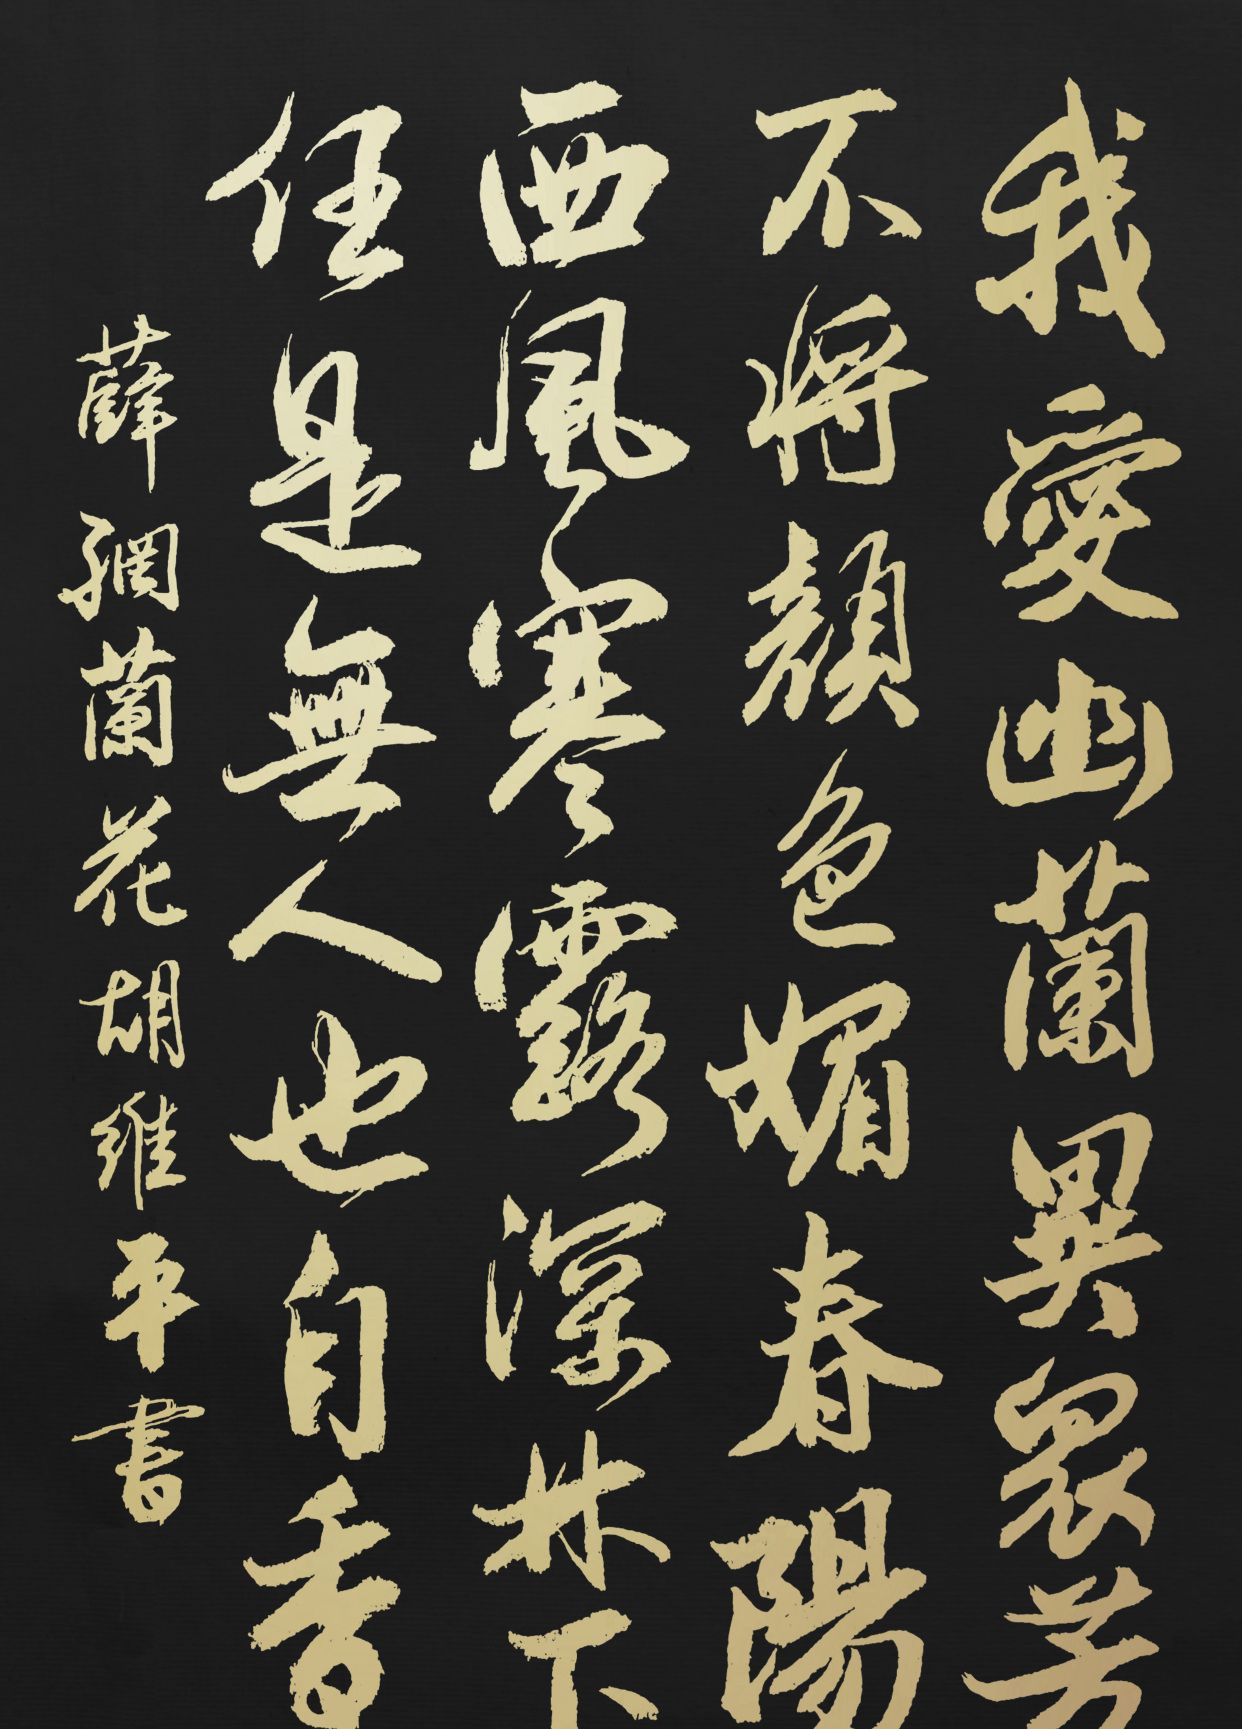 我愛幽蘭異衆芳
不將顏色媚春陽
西風寒露深林下
任是無人也自香
薛網蘭花胡維平書